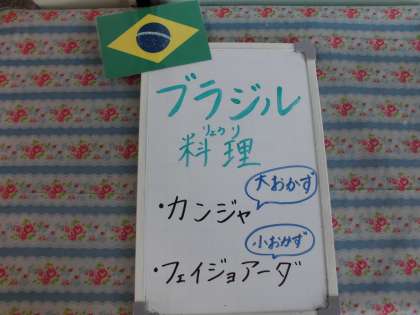 ブラジル
りょうり
料理
大おかず
・カンジャ
小おかず
・フェイジョアーダ